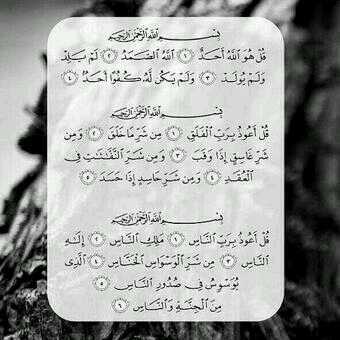 بِسْمِ اللَّهِ الرَّحْمَٰنِ الرَّحِيمِ
قُلْ هُوَ اللَّهُ أَحَدٌ ١ اللَّهُ الصَّمَدُ ٢ لَمْ يَلِدْ
وَلَمْ يُولَدْ ٣ وَلَمْ يَكُن لَّهُ كُفُوًا أَحَدٌ ٤
بِسْمِ اللَّهِ الرَّحْمَٰنِ الرَّحِيمِ
قُلْ أَعُوذُ بِرَبِّ الْفَلَقِ ١ مِن شَرِّ مَا خَلَقَ ٢ وَمِن
شَرِّ غَاسِقٍ إِذَا وَقَبَ ٣ وَمِن شَرِّ النَّفَّاثَاتِ فِي
الْعُقَدِ ٤ وَمِن شَرِّ حَاسِدٍ إِذَا حَسَدَ ٥
بِسْمِ اللَّهِ الرَّحْمَٰنِ الرَّحِيمِ
قُلْ أَعُوذُ بِرَبِّ النَّاسِ ١ مَلِكِ النَّاسِ ٢ إِلَٰهِ
النَّاسِ ٣ مِن شَرِّ الْوَسْوَاسِ الْخَنَّاسِ ٤ الَّذِي
يُوَسْوِسُ فِي صُدُورِ النَّاسِ ٥
مِنَ الْجِنَّةِ وَالنَّاسِ ٦